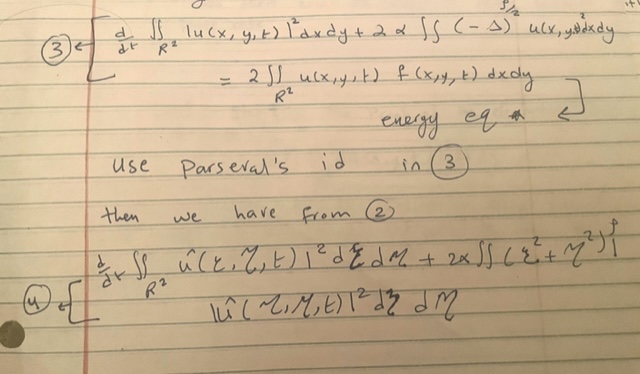 ③ ← [ d/dt ∬_{R²} |u(x, y, t)|² dx dy + 2α ∬ (-Δ)^{ρ/2} u(x, y,t)² dx dy
= 2 ∬_{R²} u(x, y, t) f(x, y, t) dx dy ]
energy eq * ↵
Use Parseval's id in ③
then we have from ②
④ ← { d/dt ∬_{R²} û(ξ, η, t)|² dξ dη + 2α ∬ (ξ² + η²)^ρ |
|û(η, η, t)|² dξ dη